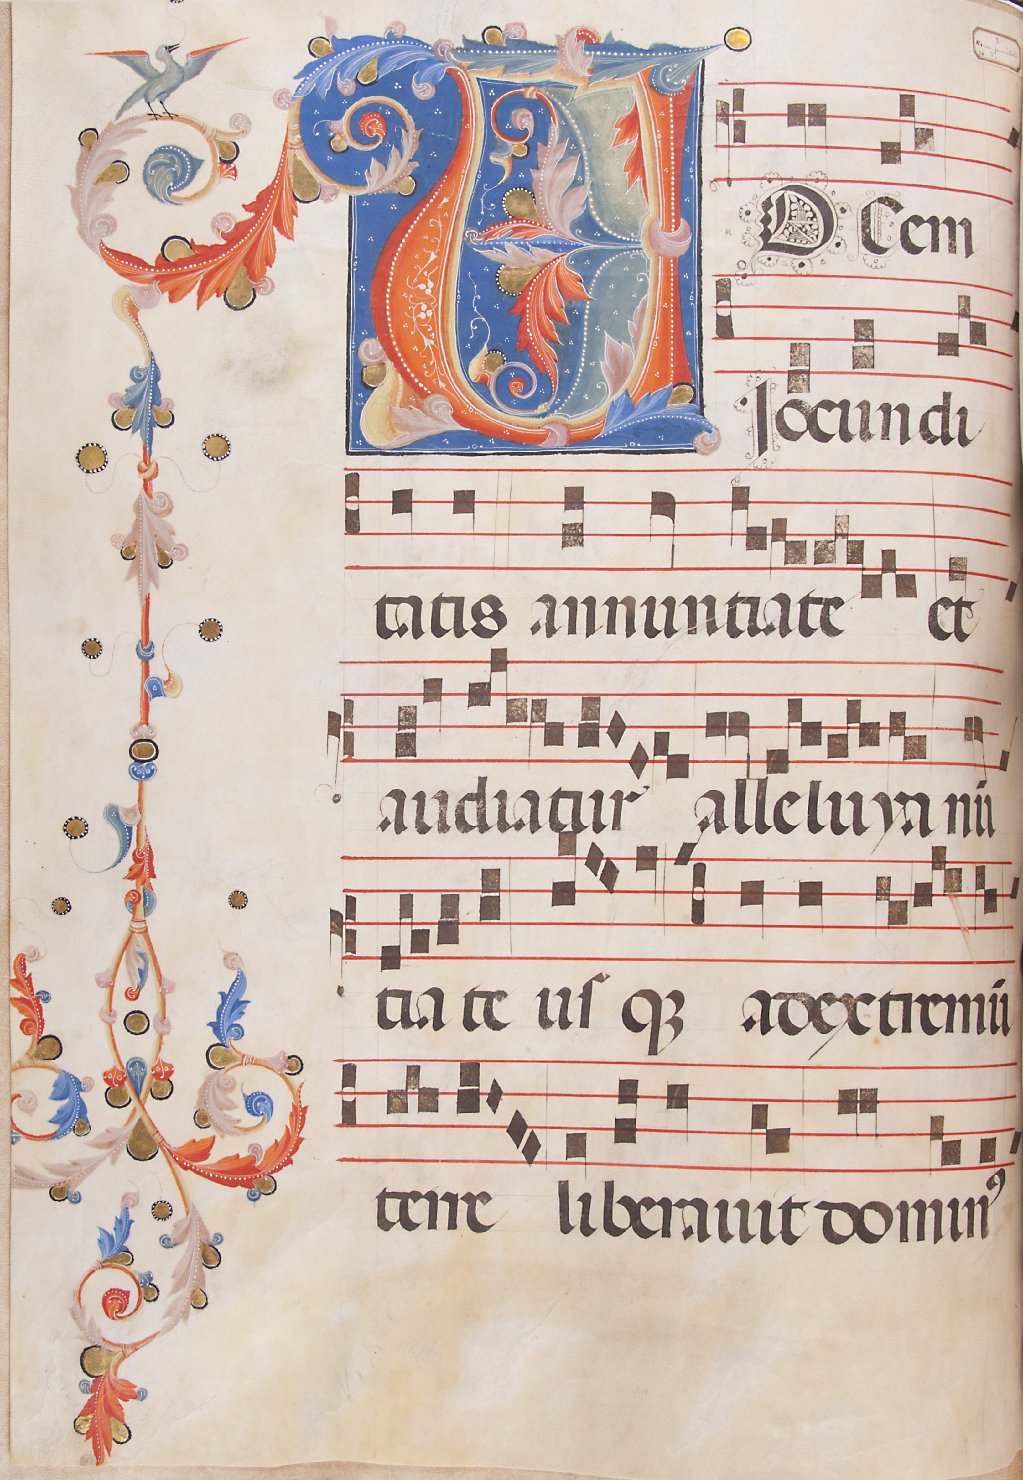 VOcem
Jocundi
tatis annuntiate et
audiatur alleluya nū
tia te usqꝫ adextremū
terre liberauit dominꝰ